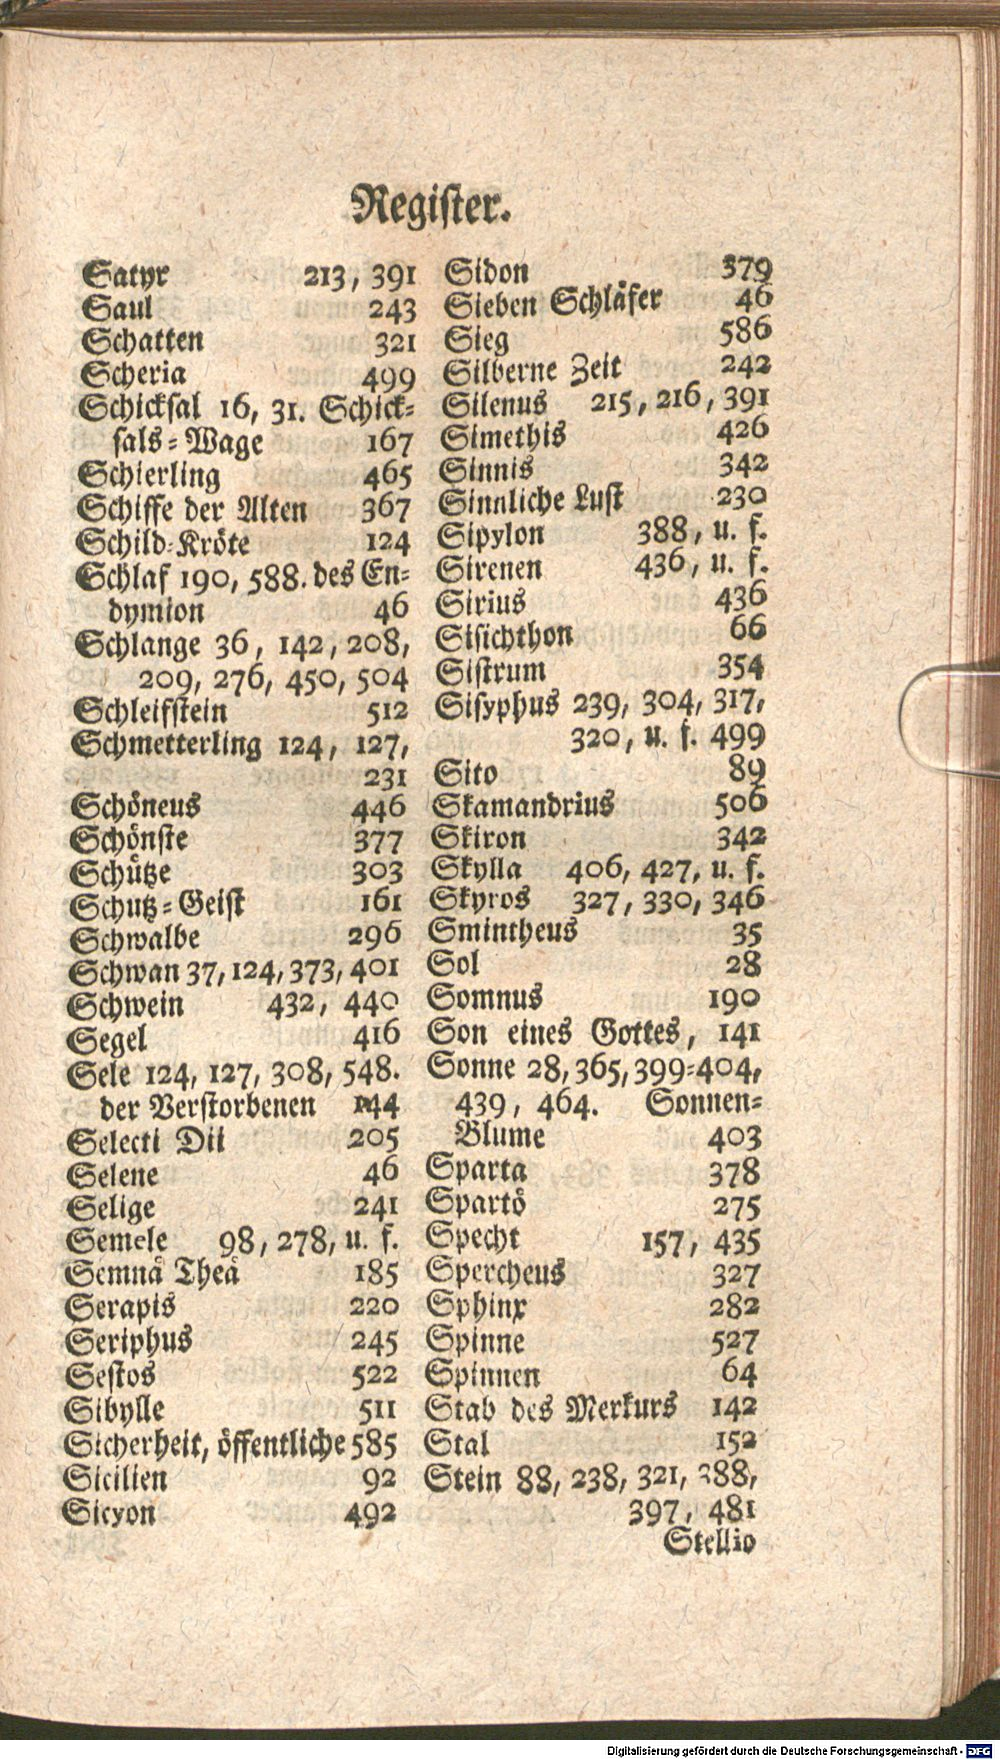 Register.
Satyr 213, 391
Saul 243
Schatten 321
Scheria 499
Schicksal 16, 31. Schick-
sals-Wage 167
Schierling 465
Schiffe der Alten 367
Schild-Kröte 124
Schlaf 190, 588. des En-
dymion 46
Schlange 36, 142, 208,
209, 276, 450, 504
Schleifstein 512
Schmetterling 124, 127,
231
Schöneus 446
Schönste 377
Schütze 303
Schutz-Geist 161
Schwalbe 296
Schwan 37, 124, 373, 401
Schwein 432, 440
Segel 416
Sele 124, 127, 308, 548.
der Verstorbenen 144
Selecti Dii 205
Selene 46
Selige 241
Semele 98, 278, u. f.
Semnä Theä 185
Serapis 220
Seriphus 245
Sestos 522
Sibylle 511
Sicherheit, öffentliche 585
Sicilien 92
Sicyon 492
Sidon 379
Sieben Schläfer 46
Sieg 586
Silberne Zeit 242
Silenus 215, 216, 391
Simethis 426
Sinnis 342
Sinnliche Lust 230
Sipylon 388, u. f.
Sirenen 436, u. f.
Sirius 436
Sisichthon 66
Sistrum 354
Sisyphus 239, 304, 317,
320, u. f. 499
Sito 89
Skamandrius 506
Skiron 342
Skylla 406, 427, u. f.
Skyros 327, 330, 346
Smintheus 35
Sol 28
Somnus 190
Son eines Gottes, 141
Sonne 28, 365, 399-404,
439, 464. Sonnen-
Blume 403
Sparta 378
Spartö 275
Specht 157, 435
Spercheus 327
Sphinx 282
Spinne 527
Spinnen 64
Stab des Merkurs 142
Stal 152
Stein 88, 238, 321, 388,
397, 481
Stellio
Digitalisierung gefördert durch die Deutsche Forschungsgemeinschaft - DFG